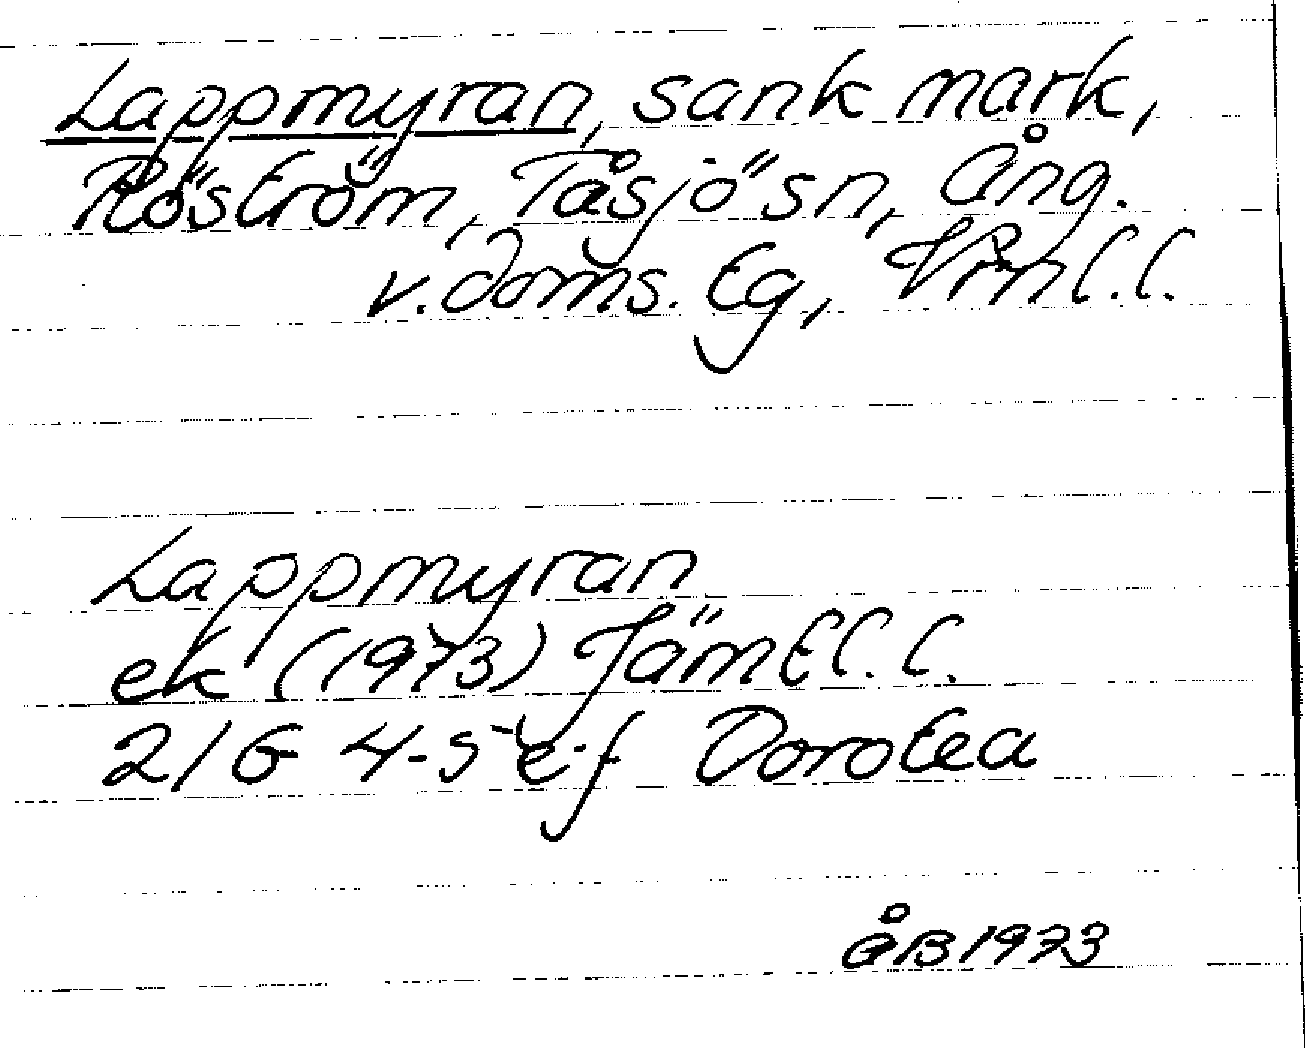 Lappmyran, sank mark,
Röström, Tåsjö sn, Ång.
v. doms. Eg, Vrnl.l.
Lappmyran
ek (1973) Jämtl.l.
21G 4-5 e-f Dorotea
ÅB 1973